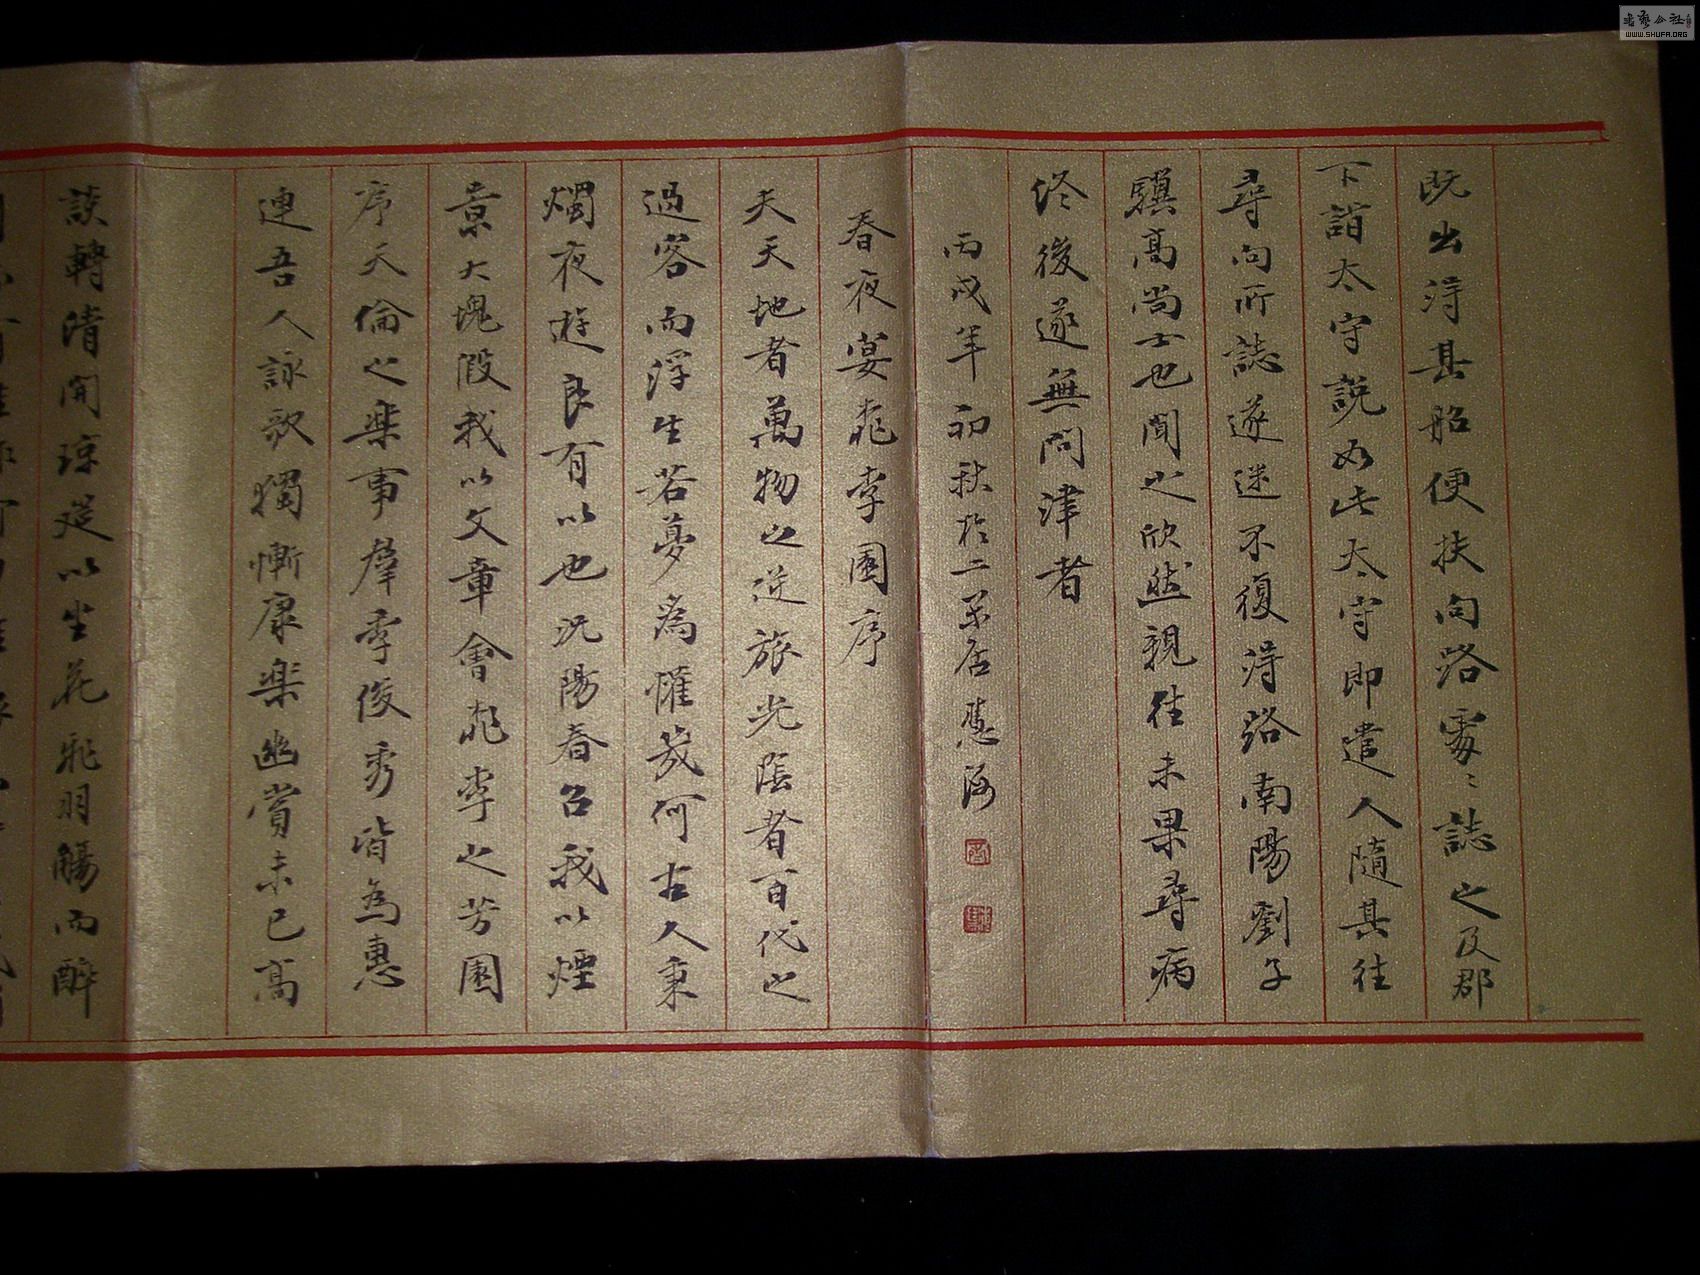 既出得其船便扶向路處〻誌之及郡
下詣太守說如此太守即遣人隨其往
尋向所誌遂迷不復得路南陽劉子
驥高尚士也聞之欣然親往未果尋病
終後遂無問津者
丙戌年初秋於二
春夜宴桃李園序
夫天地者萬物之逆旅光陰者百代之
過客而浮生若夢為懽幾何古人秉
燭夜遊良有以也況陽春召我以煙
景大塊假我以文章會桃李之芳園
序天倫之樂事羣季俊秀皆為惠
連吾人詠歌獨慚康樂幽賞未已高
談轉清開瓊筵以坐花飛羽觴而醉
WWW.SHUFA.ORG